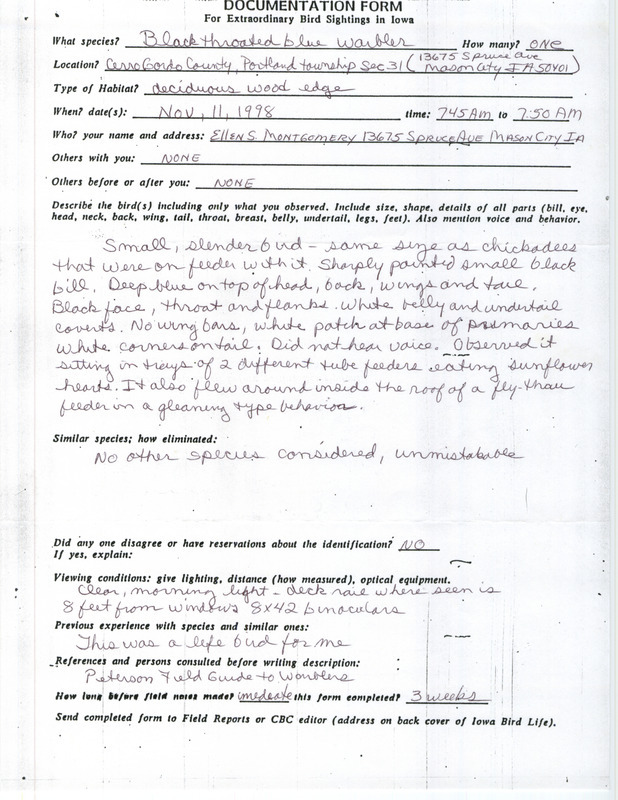 DOCUMENTATION FORM
For Extraordinary Bird Sightings in Iowa
What species? Black throated blue warbler How many? ONE
Location? Cerro Gordo County, Portland township Sec 31 (13675 Spruce Ave
Mason City IA 50401)
Type of Habitat? deciduous wood edge
When? date(s): Nov, 11, 1998 time: 745 Am to 7:50 AM
Who? your name and address: Ellen S. Montgomery 13675 Spruce Ave Mason City IA
Others with you: NONE
Others before or after you: NONE
Describe the bird(s) including only what you observed. Include size, shape, details of all parts (bill, eye,
head, neck, back, wing, tail, throat, breast, belly, undertail, legs, feet). Also mention voice and behavior.
Small, slender bird - same size as chickadees
that were on feeder with it. Sharply pointed small black
bill. Deep blue on top of head, back, wings and tail.
Black face, throat and flanks. White belly and undertail
coverts. No wing bars, white patch at base of primaries
white corners on tail. Did not hear voice. Observed it
sitting in trays of 2 different tube feeders eating sunflower
hearts. It also flew around inside the roof of a fly-thru
feeder in a gleaning type behavior.
Similar species; how eliminated:
No other species considered, unmistakable
Did any one disagree or have reservations about the identification? NO
If yes, explain:
Viewing conditions: give lighting, distance (how measured), optical equipment.
Clear, morning light - deck rail where seen is
8 feet from windows 8x42 binoculars
Previous experience with species and similar ones:
This was a life bird for me
References and persons consulted before writing description:
Peterson Field Guide to Warblers
How long before field notes made? imediate this form completed? 3 weeks
Send completed form to Field Reports or CBC editor (address on back cover of Iowa Bird Life).